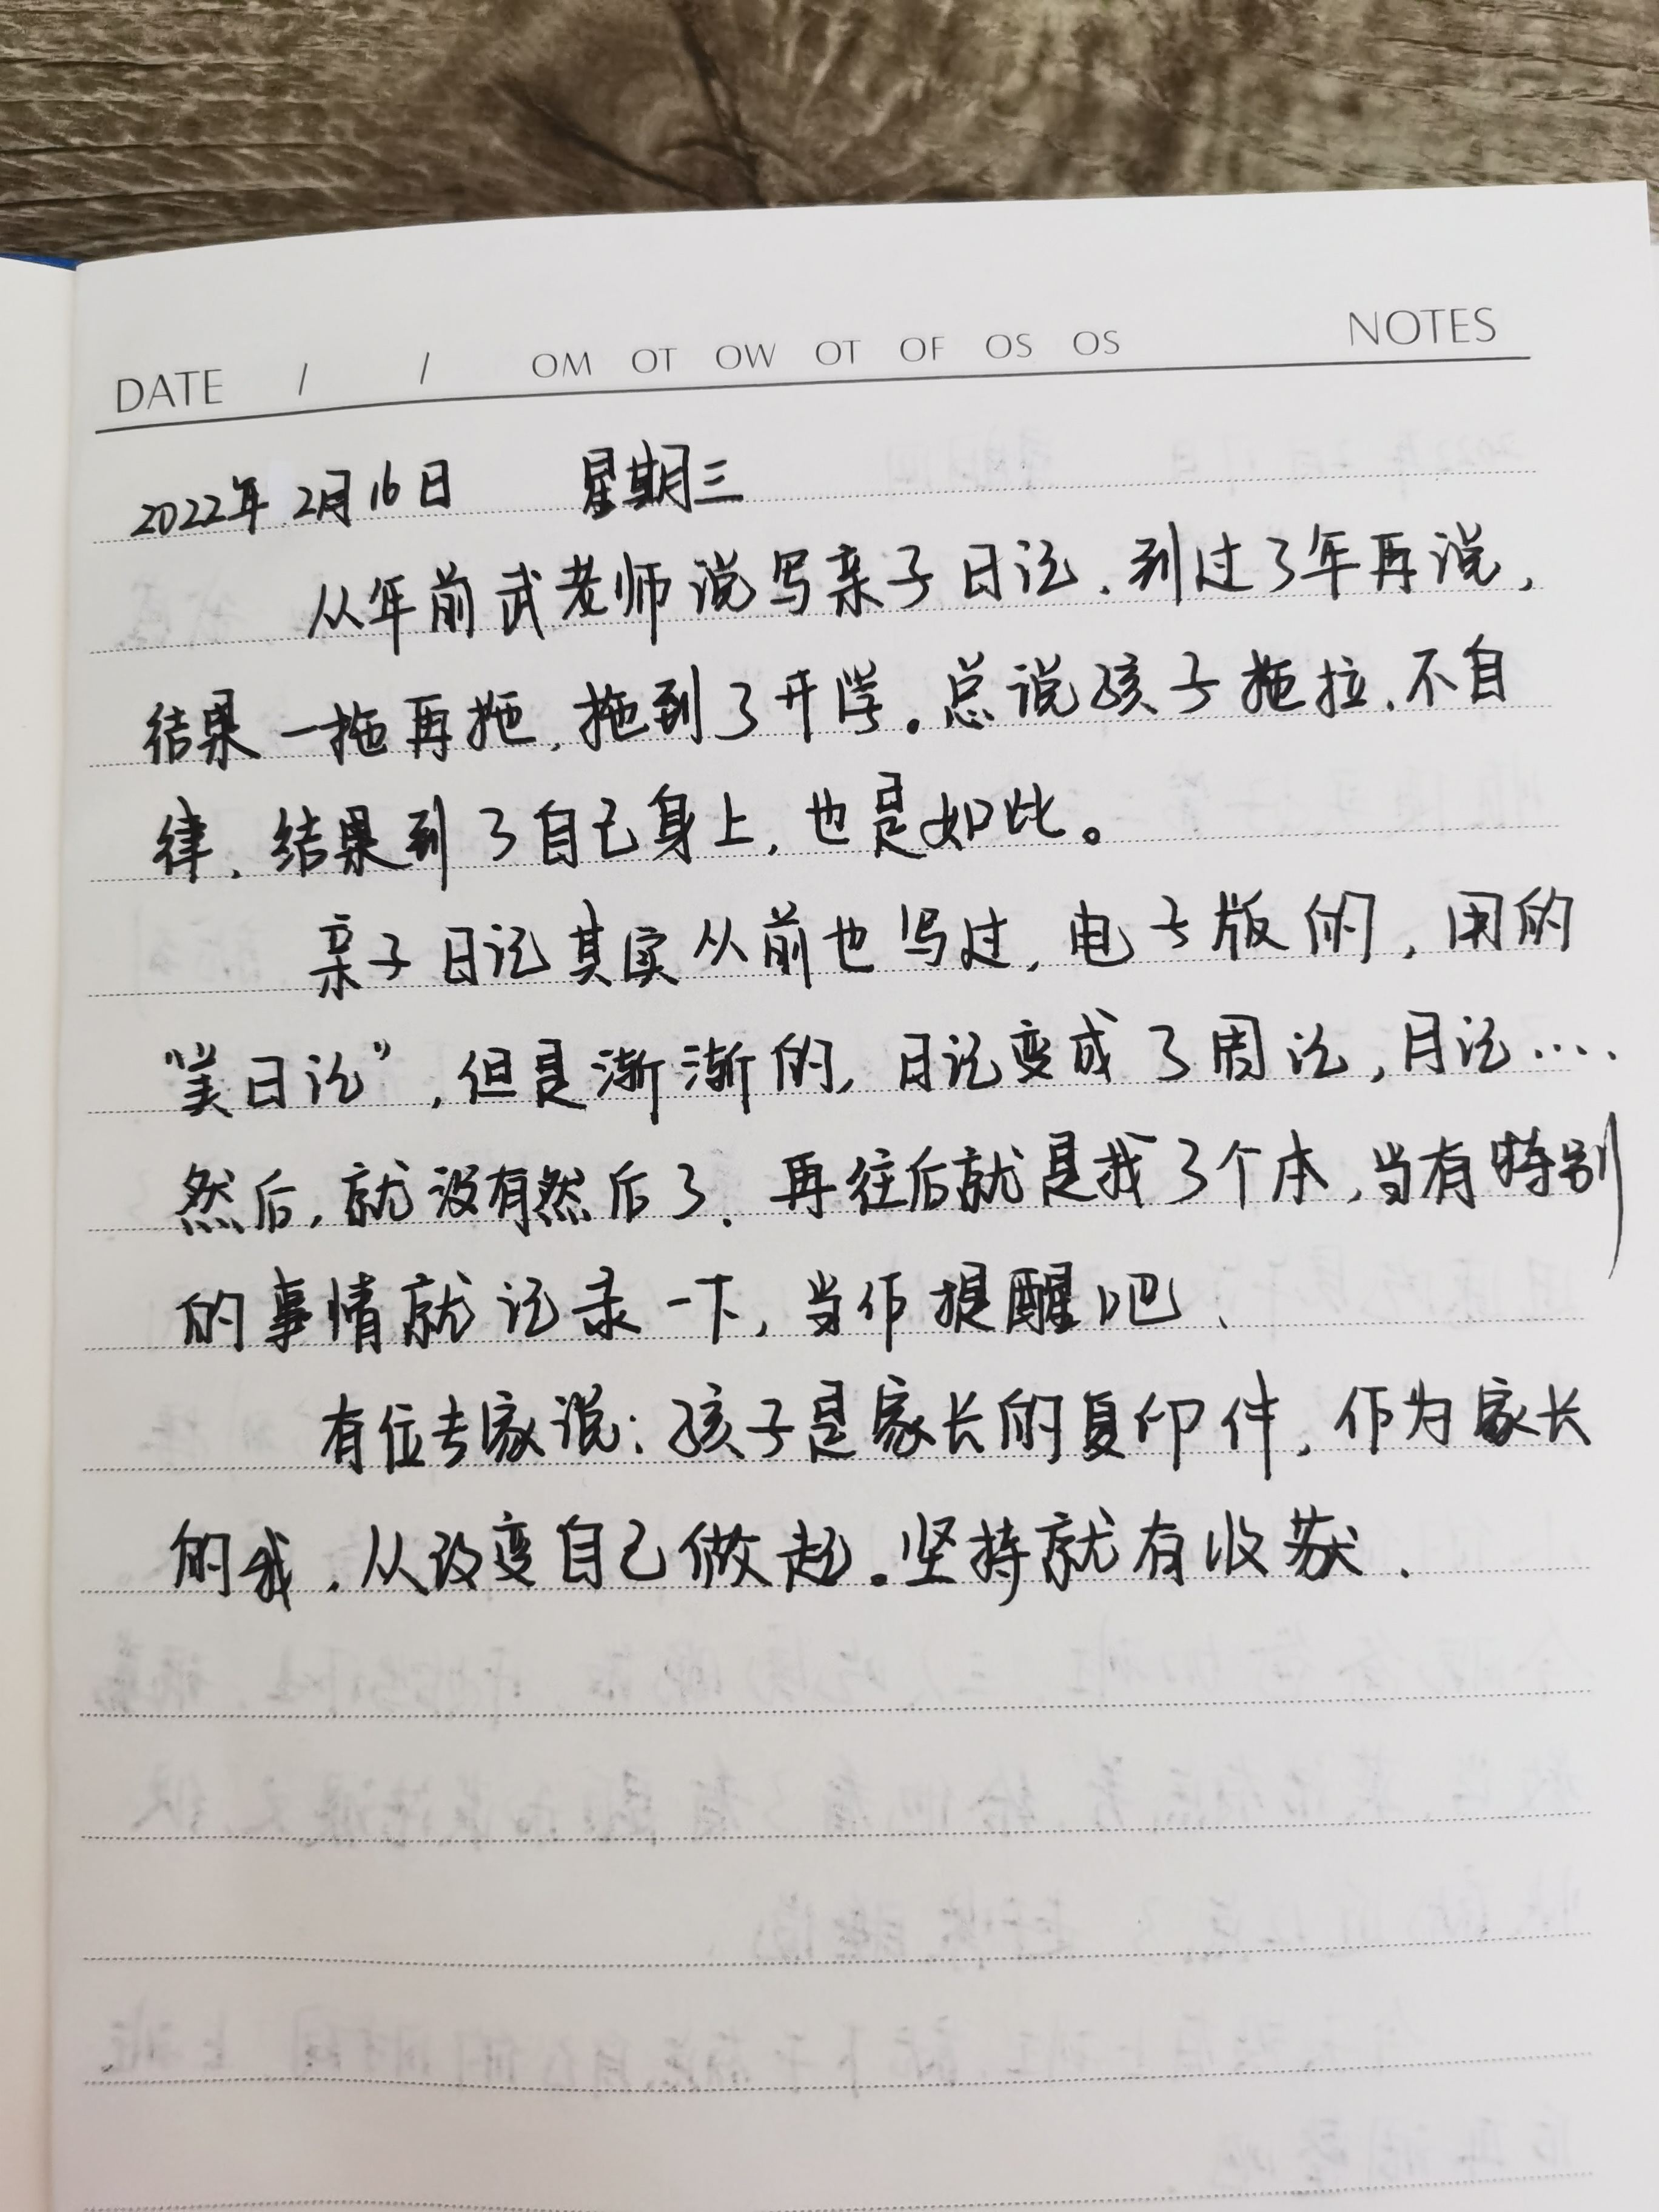 DATE / / OM OT OW OT OF OS OS NOTES
2022年2月16日 星期三
从年前武老师说写亲子日记,到过了年再说,
结果一拖再拖,拖到了开学。总说孩子拖拉,不自
律,结果到了自己身上,也是如此。
亲子日记其实从前也写过,电子版的,用的
“美日记”,但是渐渐的,日记变成了周记,月记....
然后,就没有然后了.再往后就是找了个本,当有特别
的事情就记录一下,当作提醒吧.
有位专家说:孩子是家长的复印件,作为家长
的我,从改变自己做起。坚持就有收获.